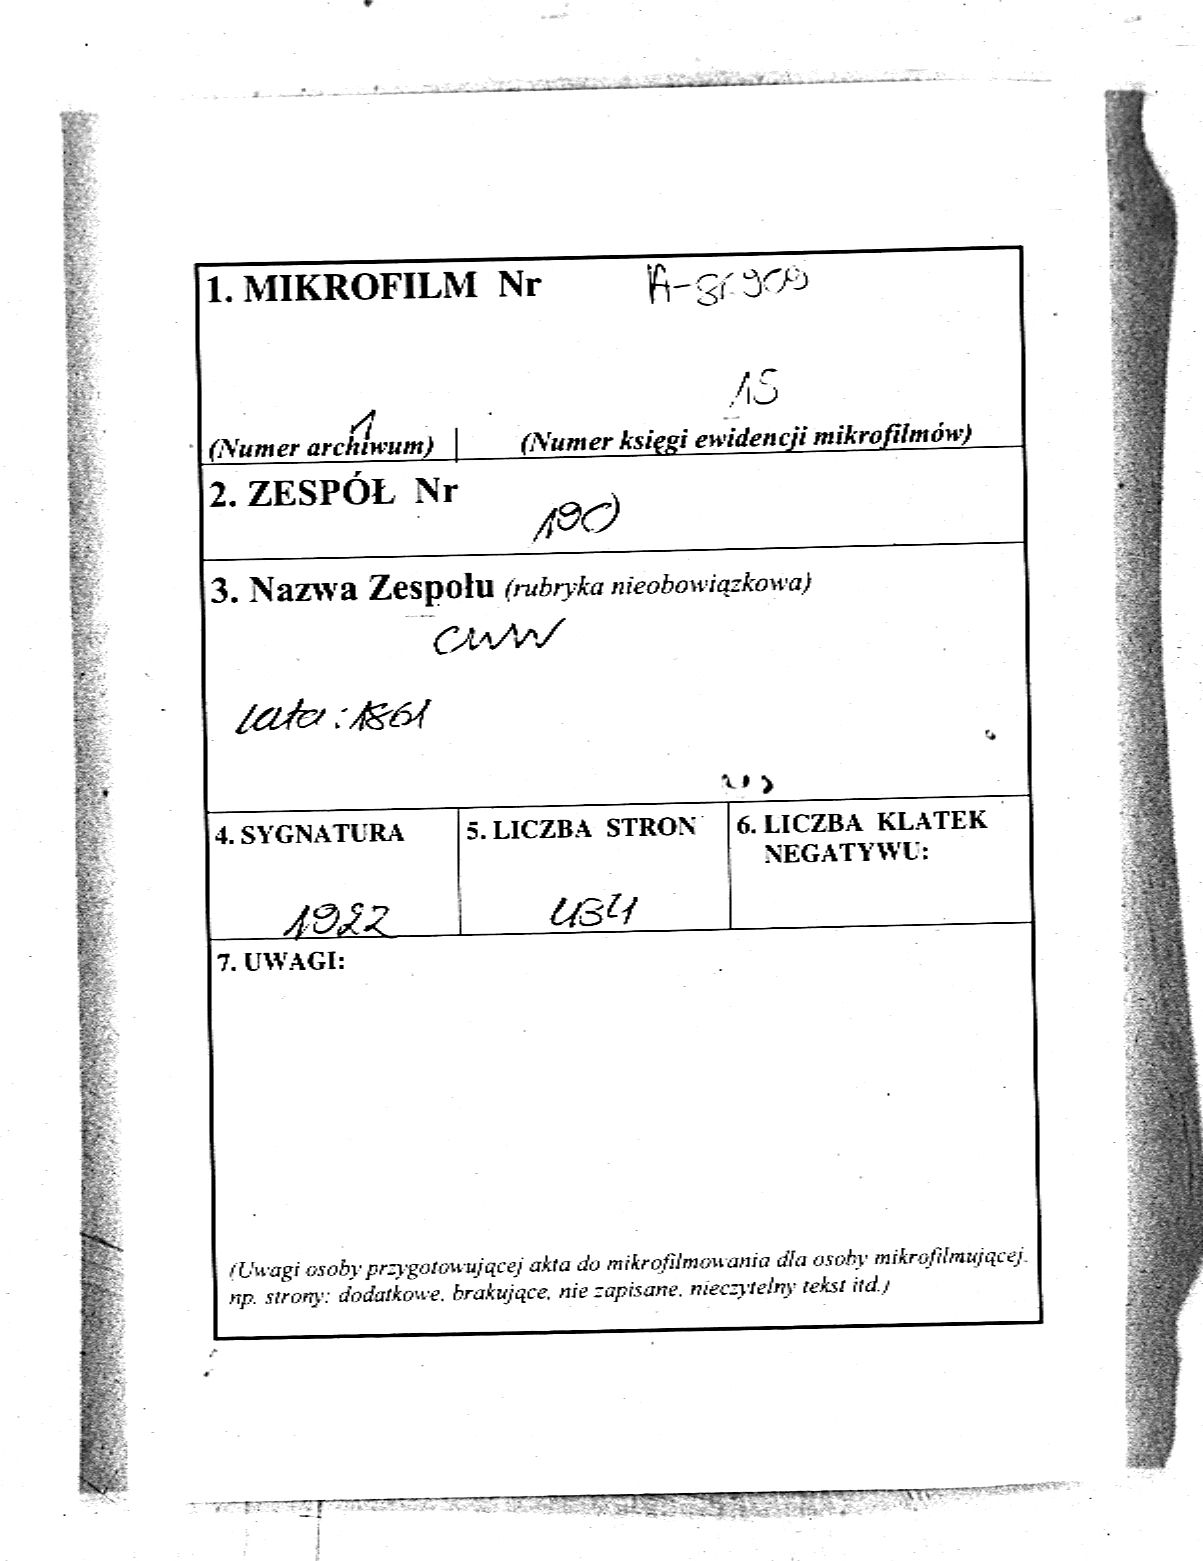 1. MIKROFILM Nr
15
1
(Numer archiwum) | (Numer księgi ewidencji mikrofilmów)
2. ZESPÓŁ Nr
190
3. Nazwa Zespołu (rubryka nieobowiązkowa)
CWW
lata: 1861
4. SYGNATURA 5. LICZBA STRON 6. LICZBA KLATEK
NEGATYWU:
1922 434
7. UWAGI:
(Uwagi osoby przygotowującej akta do mikrofilmowania dla osoby mikrofilmującej.
np. strony: dodatkowe, brakujące, nie zapisane, nieczytelny tekst itd.)